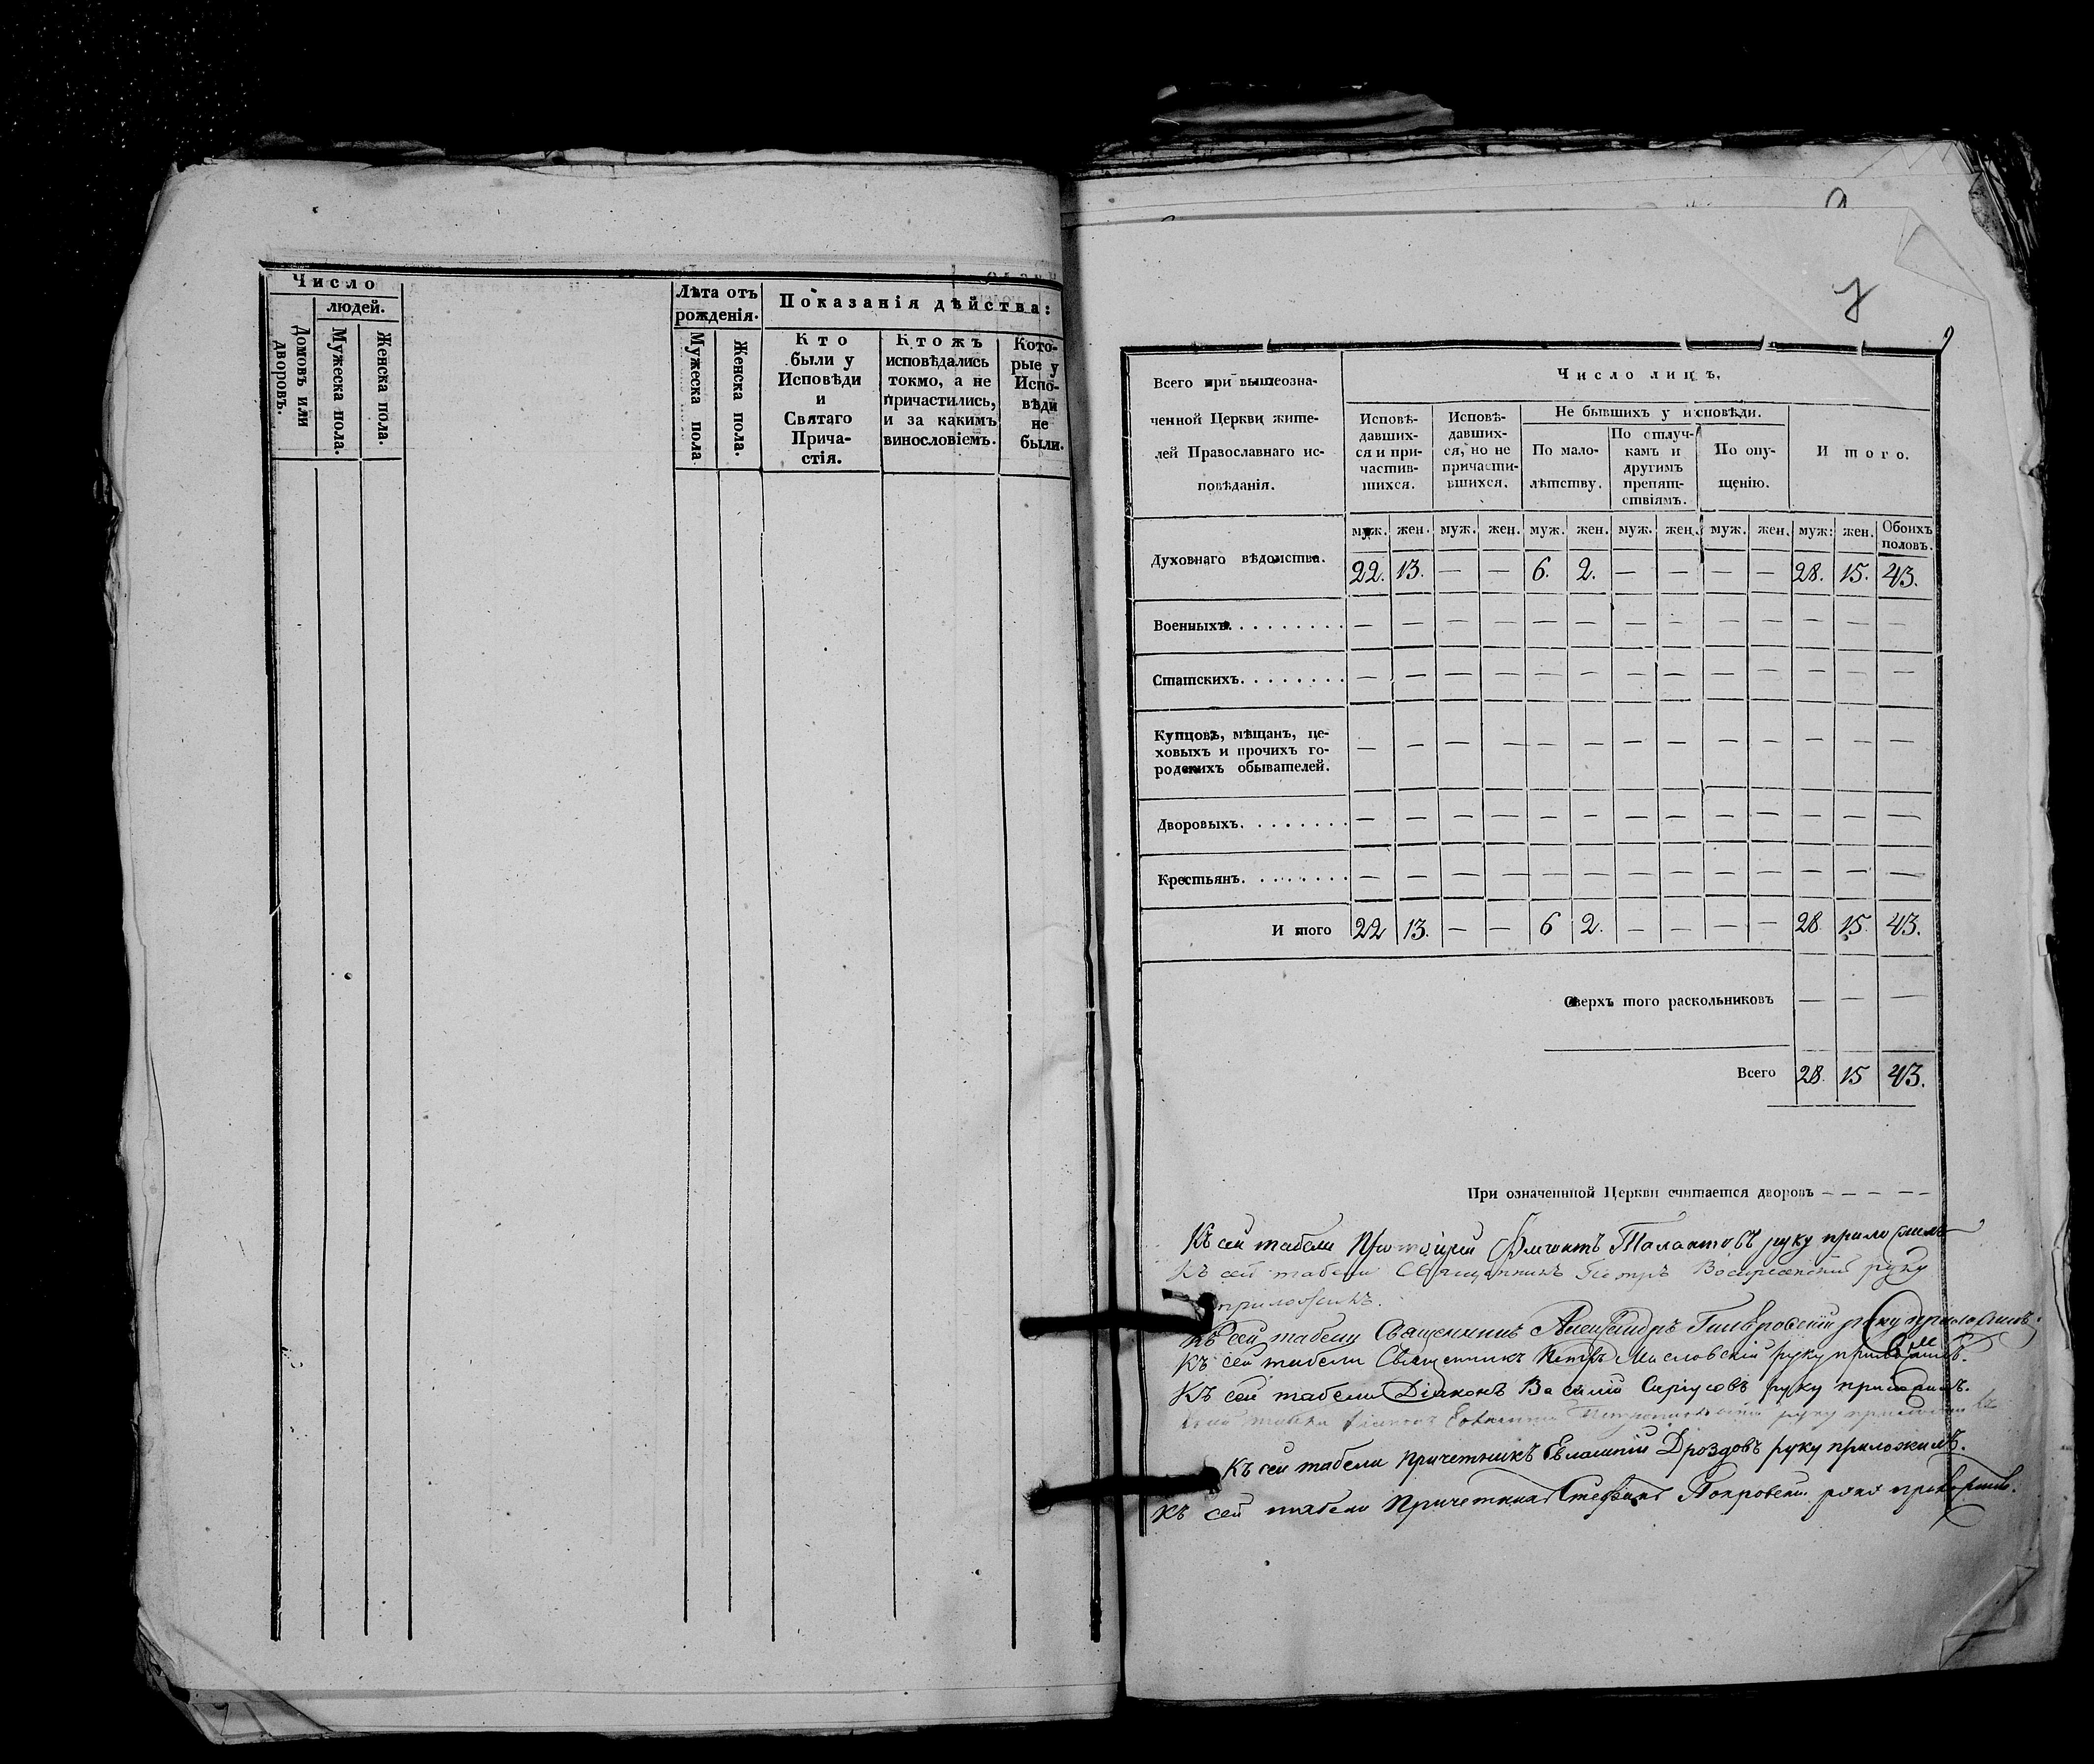 Число
людей.
Домовъ или дворовъ.
Мужеска пола.
Женска пола.
Лѣта отъ рожденія.
Мужеска пола
Женска пола.
Показанія дѣйства:
Кто
были у
Исповѣди
и
Святаго
Прича-
стія.
Ктожъ
исповѣдались
токмо, а не
причастились,
и за какимъ
винословіемъ.
Кото-
рые у
Испо-
вѣди
не
были.
9
7
Всего при вышеозна-
ченной Церкви жите-
лей Православнаго ис-
повѣданія.
Число лицъ.
Исповѣ-
давших-
ся и при-
частив-
шихся.
Исповѣ-
давших-
ся, но не
причасти-
вшихся.
Не бывшихъ у исповѣди.
По мало-
лѣтству.
По отлуч-
камъ и
другимъ
препят-
ствіямъ.
По опу-
щенію.
И того.
муж. жен. муж. жен. муж. жен. муж. жен. муж. жен. муж: жен. Обоихъ половъ.
Духовнаго вѣдомства. 22. 13. — — 6. 2. — — — — 28. 15. 43.
Военныхъ. — — — — — — — — — — — — —
Статскихъ. — — — — — — — — — — — — —
Купцовъ, мѣщанъ, це-
ховыхъ и прочихъ го-
родскихъ обывателей. — — — — — — — — — — — — —
Дворовыхъ. — — — — — — — — — — — — —
Крестьянъ. — — — — — — — — — — — — —
И того 22 13. — — 6 2. — — — — 28. 15. 43.
Сверхъ того раскольниковъ — — —
Всего 28. 15 43.
При означенной Церкви считается дворовъ — — — — —
Къ сей табели Протоіерей Талантовъ руку приложилъ
Къ сей табели Священникъ Петръ Воскресенскій руку
приложилъ.
Къ сей табели Священникъ Александръ руку приложилъ.
Къ сей табели Священникъ Петръ Масловскій руку приложилъ.
Къ сей табели Діаконъ Василій руку приложилъ.
Къ сей табели Діаконъ руку приложилъ
Къ сей табели Причетникъ Евлампій Дроздовъ руку приложилъ.
Къ сей табели Причетникъ Стефанъ Покровскій руку приложилъ.